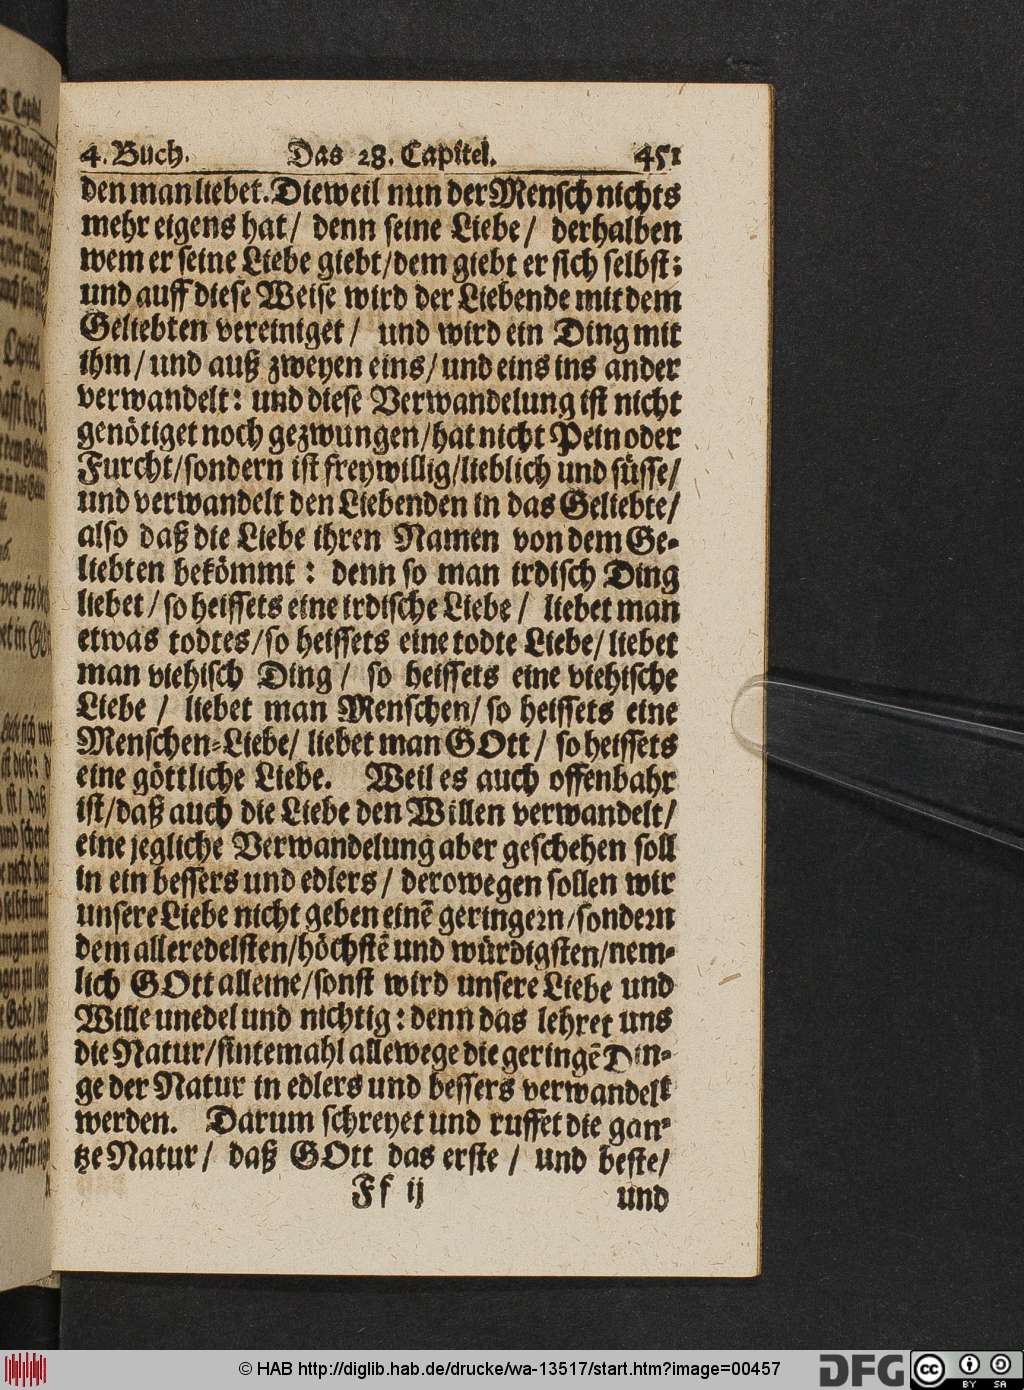 4. Buch. Das 28. Capitel. 451
den man liebet. Dieweil nun der Mensch nichts
mehr eigens hat / denn seine Liebe / derhalben
wem er seine Liebe giebt / dem giebt er sich selbst;
und auff diese Weise wird der Liebende mit dem
Geliebten vereiniget / und wird ein Ding mit
ihm / und auß zweyen eins / und eins ins ander
verwandelt: und diese Verwandelung ist nicht
genötiget noch gezwungen / hat nicht Pein oder
Furcht / sondern ist freywillig / lieblich und süsse /
und verwandelt den Liebenden in das Geliebte /
also daß die Liebe ihren Namen von dem Ge-
liebten bekömmt: denn so man irdisch Ding
liebet / so heissets eine irdische Liebe / liebet man
etwas todtes / so heissets eine todte Liebe / liebet
man viehisch Ding / so heissets eine viehische
Liebe / liebet man Menschen / so heissets eine
Menschen-Liebe / liebet man GOtt / so heissets
eine göttliche Liebe. Weil es auch offenbahr
ist / daß auch die Liebe den Willen verwandelt /
eine jegliche Verwandelung aber geschehen soll
in ein bessers und edlers / derowegen sollen wir
unsere Liebe nicht geben einē geringern / sondern
dem alleredelsten / höchstē und würdigsten / nem-
lich GOtt alleine / sonst wird unsere Liebe und
Wille unedel und nichtig: denn das lehret uns
die Natur / sintemahl allewege die geringē Din-
ge der Natur in edlers und bessers verwandelt
werden. Darum schreyet und ruffet die gan-
tze Natur / daß GOtt das erste / und beste /
Ff ij und
© HAB http://diglib.hab.de/drucke/wa-13517/start.htm?image=00457
DFG cc BY SA